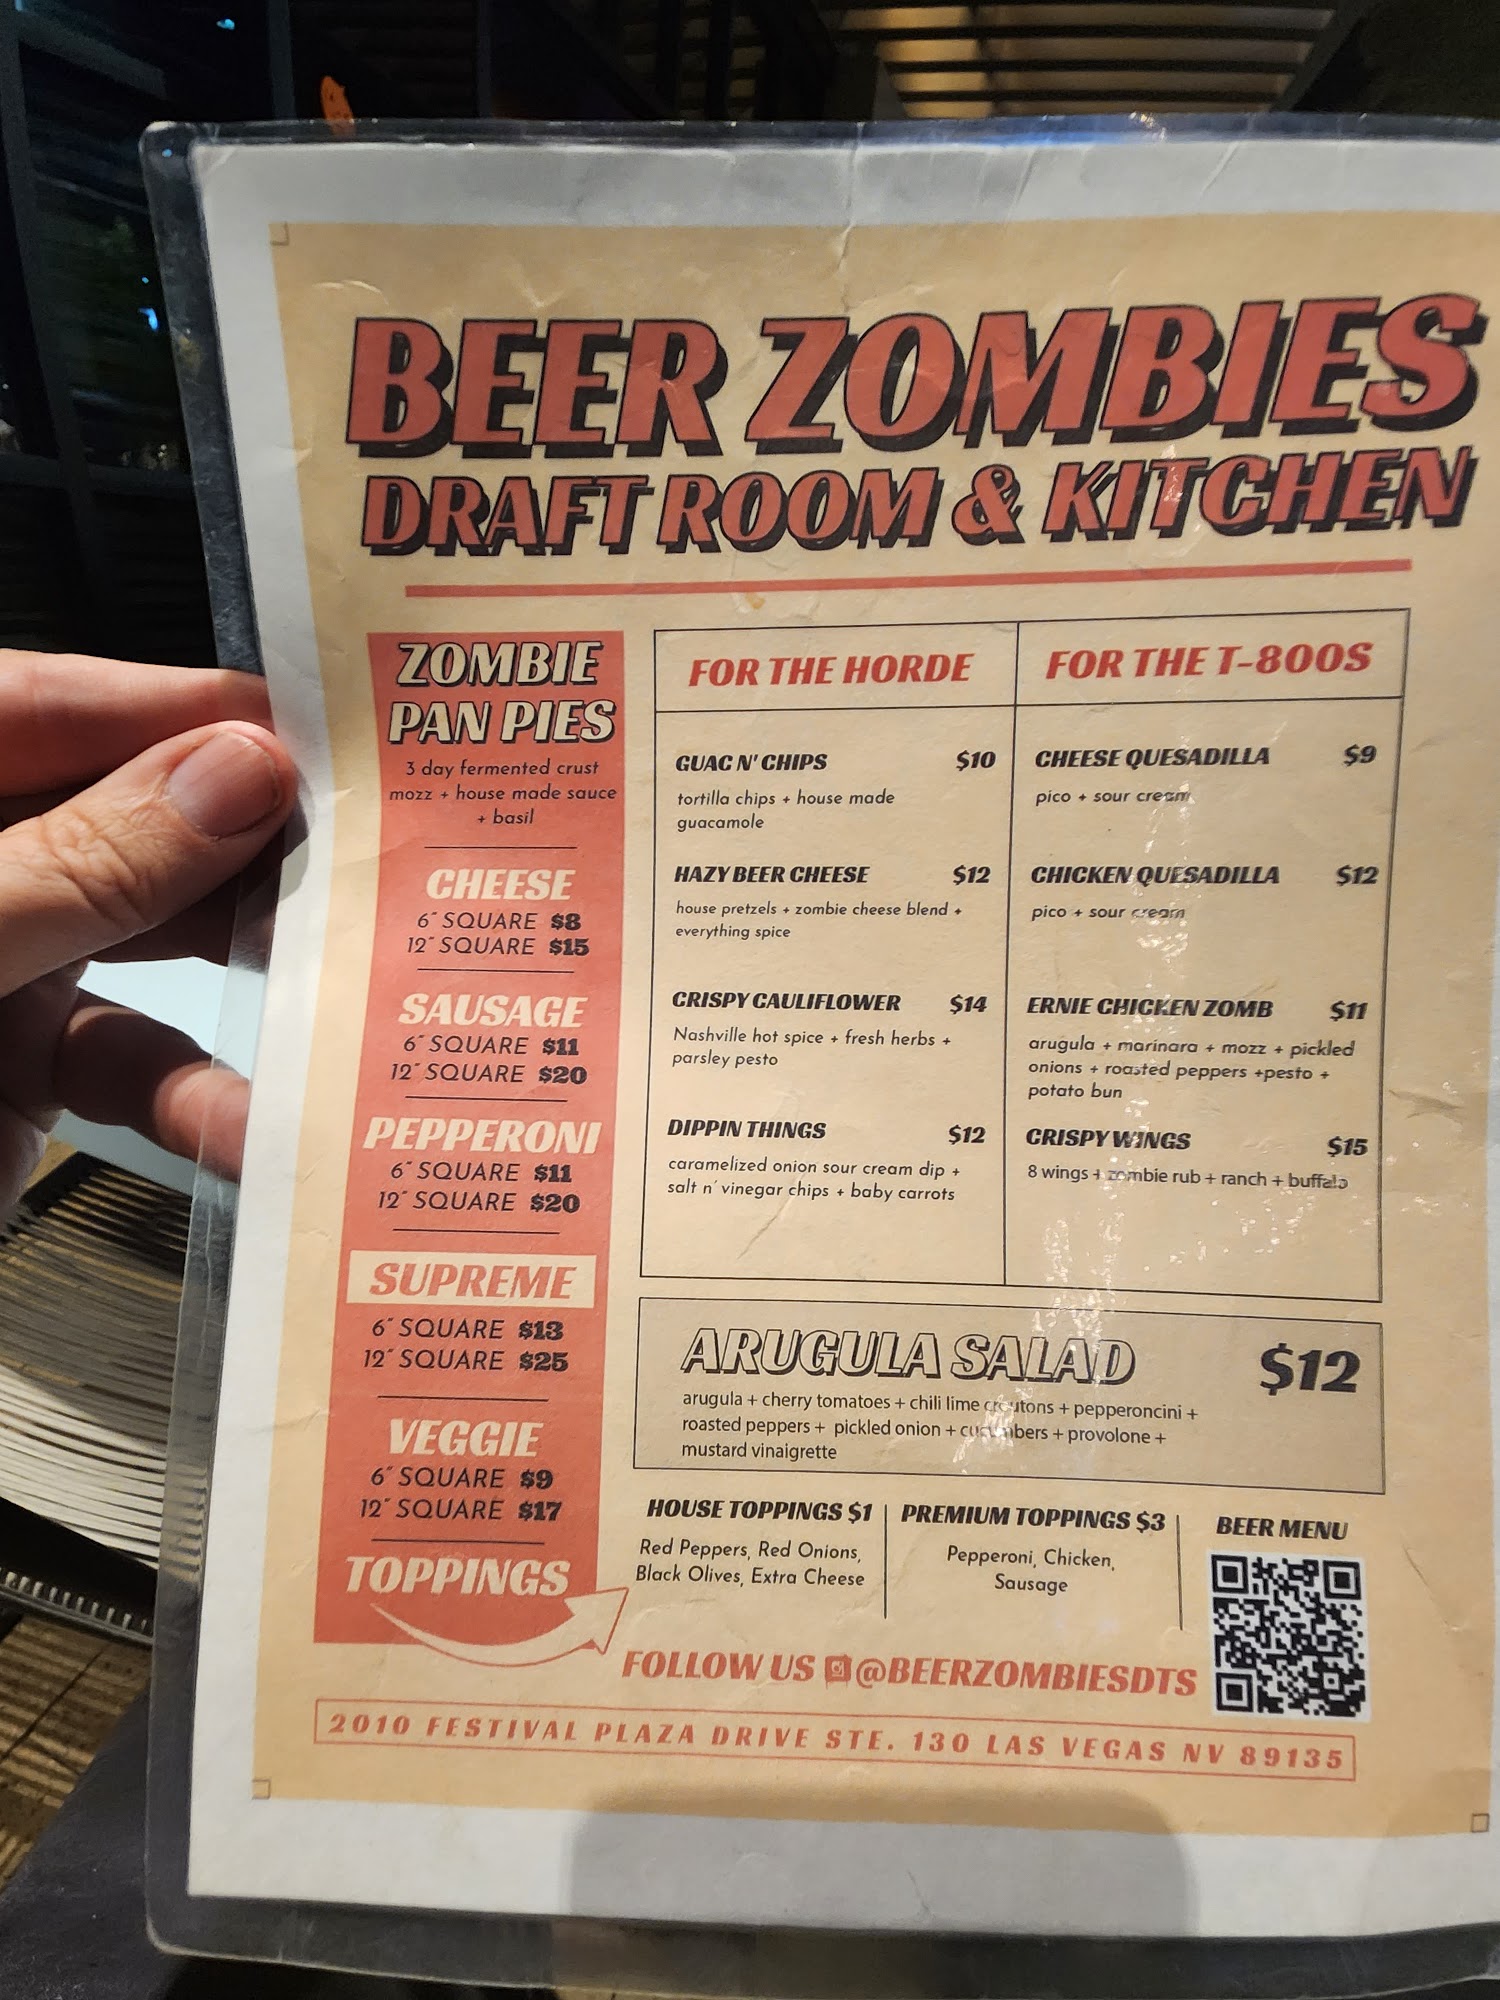 BEER ZOMBIES
DRAFT ROOM & KITCHEN
ZOMBIE
PAN PIES
3 day fermented crust
mozz + house made sauce
+ basil
CHEESE
6" SQUARE $8
12" SQUARE $15
SAUSAGE
6" SQUARE $11
12" SQUARE $20
PEPPERONI
6" SQUARE $11
12" SQUARE $20
SUPREME
6" SQUARE $13
12" SQUARE $25
VEGGIE
6" SQUARE $9
12" SQUARE $17
TOPPINGS
FOR THE HORDE
GUAC N' CHIPS $10
tortilla chips + house made
guacamole
HAZY BEER CHEESE $12
house pretzels + zombie cheese blend +
everything spice
CRISPY CAULIFLOWER $14
Nashville hot spice + fresh herbs +
parsley pesto
DIPPIN THINGS $12
caramelized onion sour cream dip +
salt n' vinegar chips + baby carrots
FOR THE T-800S
CHEESE QUESADILLA $9
pico + sour cream
CHICKEN QUESADILLA $12
pico + sour cream
ERNIE CHICKEN ZOMB $11
arugula + marinara + mozz + pickled
onions + roasted peppers +pesto +
potato bun
CRISPY WINGS $15
8 wings + zombie rub + ranch + buffalo
ARUGULA SALAD $12
arugula + cherry tomatoes + chili lime croutons + pepperoncini +
roasted peppers + pickled onion + cucumbers + provolone +
mustard vinaigrette
HOUSE TOPPINGS $1
Red Peppers, Red Onions,
Black Olives, Extra Cheese
PREMIUM TOPPINGS $3
Pepperoni, Chicken,
Sausage
BEER MENU
FOLLOW US @BEERZOMBIESDTS
2010 FESTIVAL PLAZA DRIVE STE. 130 LAS VEGAS NV 89135